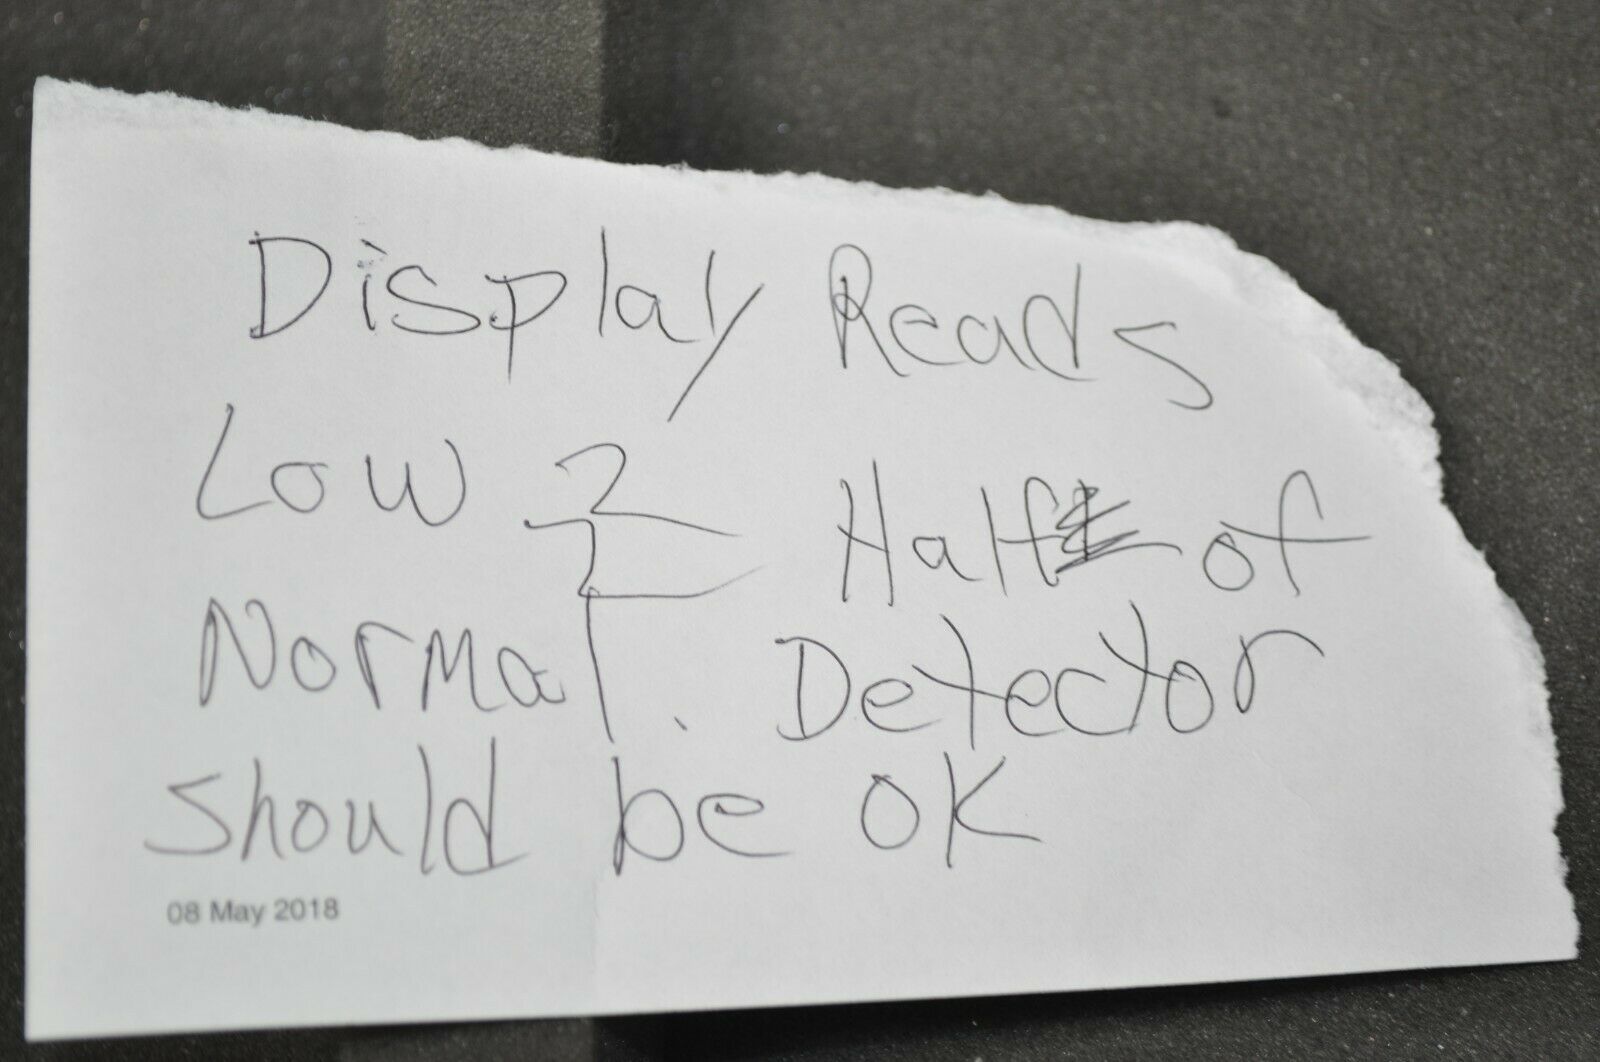 Display Reads
Low Half of
Normal. Detector
should be OK
08 May 2018